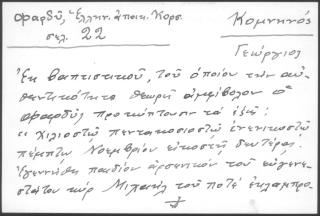 Φαρδύ, Ἑλλην. ἀποικ. Κορσ.
σελ. 22
Κομνηνός
Γεώργιος
Ἐκ βαπτιστικοῦ, τοῦ ὁποίου τὴν αὐ-
θεντικότητα θεωρεῖ ἀμφίβολον ὁ
Φαρδύς προκύπτουν τὰ ἑξῆς:
"Χιλιοστῷ πεντακοσιοστῷ ἐνενικοστῷ
πέμπτῳ Νοεμβρίου εἰκοστῇ δευτέρᾳ.
Ἐγεννήθη παιδίον ἀρσενικὸν τοῦ εὐγενε-
στάτου κὺρ Μιχαὴλ τοῦ ποτέ ἐκλαμπρο-